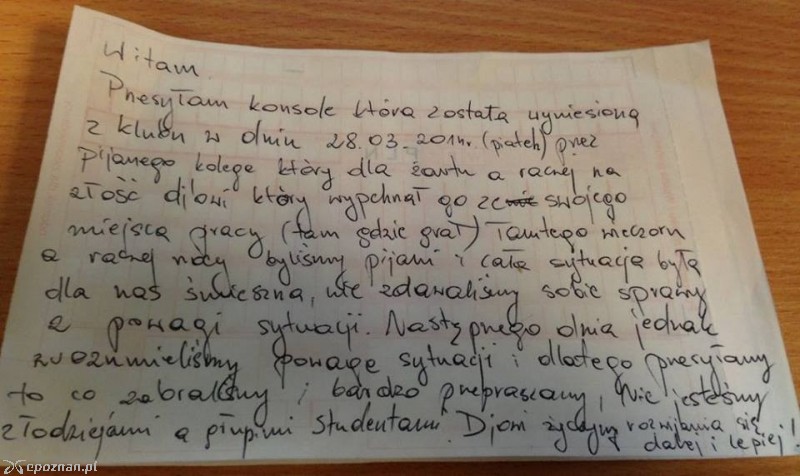 Witam.
Przesyłam konsole która została wyniesioną
z klubu w dniu 28.03.2014r. (piątek) przez
pijanego kolege który dla żartu a raczej na
złość dj'owi który wypchnął go ze swojego
miejsca gracy (tam gdzie grał) Tamtego wieczoru
a raczej nocy byliśmy pijani i cała sytuacja była
dla nas śmieszna, nie zdawaliśmy sobie sprawy
z powagi sytuacji. Następnego dnia jednak
zrozumieliśmy powagę sytuacji i dlatego przesyłamy
to co zabraliśmy i bardzo przepraszamy, Nie jesteśmy
złodziejami a głupimi studentami. Djom życzymy rozwijania się
dalej i lepiej!
epoznan.pl